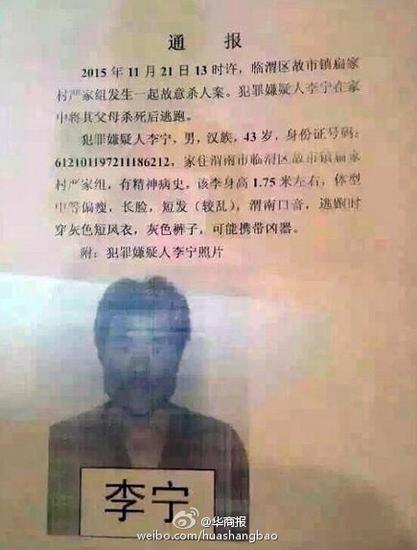 通 报
2015 年 11 月 21 日 13 时许，临渭区故市镇扁家
村严家组发生一起故意杀人案。犯罪嫌疑人李宁在家
中将其父母杀死后逃跑。
犯罪嫌疑人李宁，男，汉族，43 岁，身份证号码：
612101197211186212，家住渭南市临渭区故市镇扁家
村严家组，有精神病史，该李身高 1.75 米左右，体型
中等偏瘦，长脸，短发（较乱），渭南口音，逃跑时
穿灰色短风衣，灰色裤子，可能携带凶器。
附：犯罪嫌疑人李宁照片
李宁
@华商报
weibo.com/huashangbao